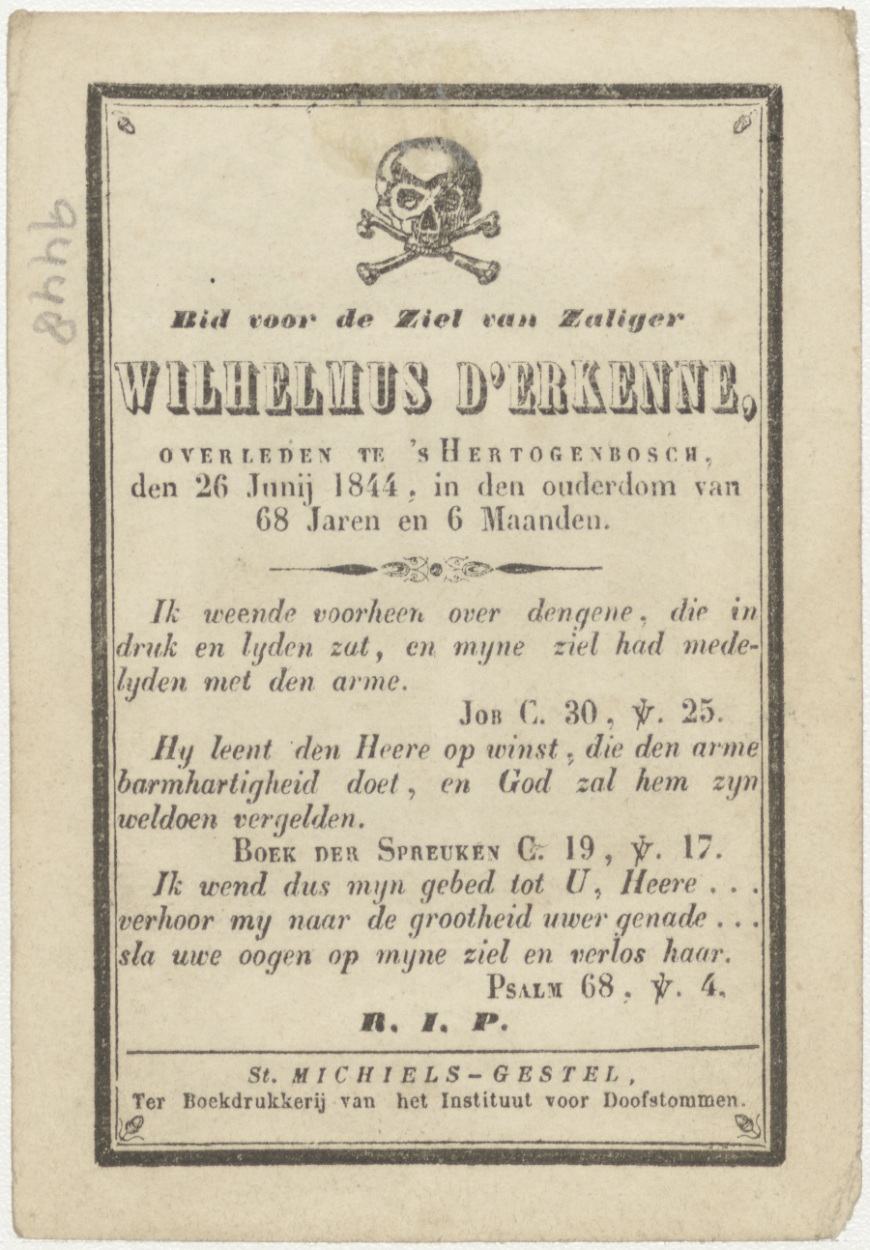 Bid voor de Ziel van Zaliger
WILHELMUS D'ERKENNE,
OVERLEDEN TE 'S HERTOGENBOSCH,
den 26 Junij 1844, in den ouderdom van
68 Jaren en 6 Maanden.
Ik weende voorheen over dengene, die in
druk en lyden zat, en myne ziel had mede-
lyden met den arme.
JOB C. 30, ℣. 25.
Hy leent den Heere op winst, die den arme
barmhartigheid doet, en God zal hem zyn
weldoen vergelden.
BOEK DER SPREUKEN C. 19, ℣. 17.
Ik wend dus myn gebed tot U, Heere . . .
verhoor my naar de grootheid uwer genade . . .
sla uwe oogen op myne ziel en verlos haar.
PSALM 68, ℣. 4.
R. I. P.
St. MICHIELS-GESTEL,
Ter Boekdrukkerij van het Instituut voor Doofstommen.
9448